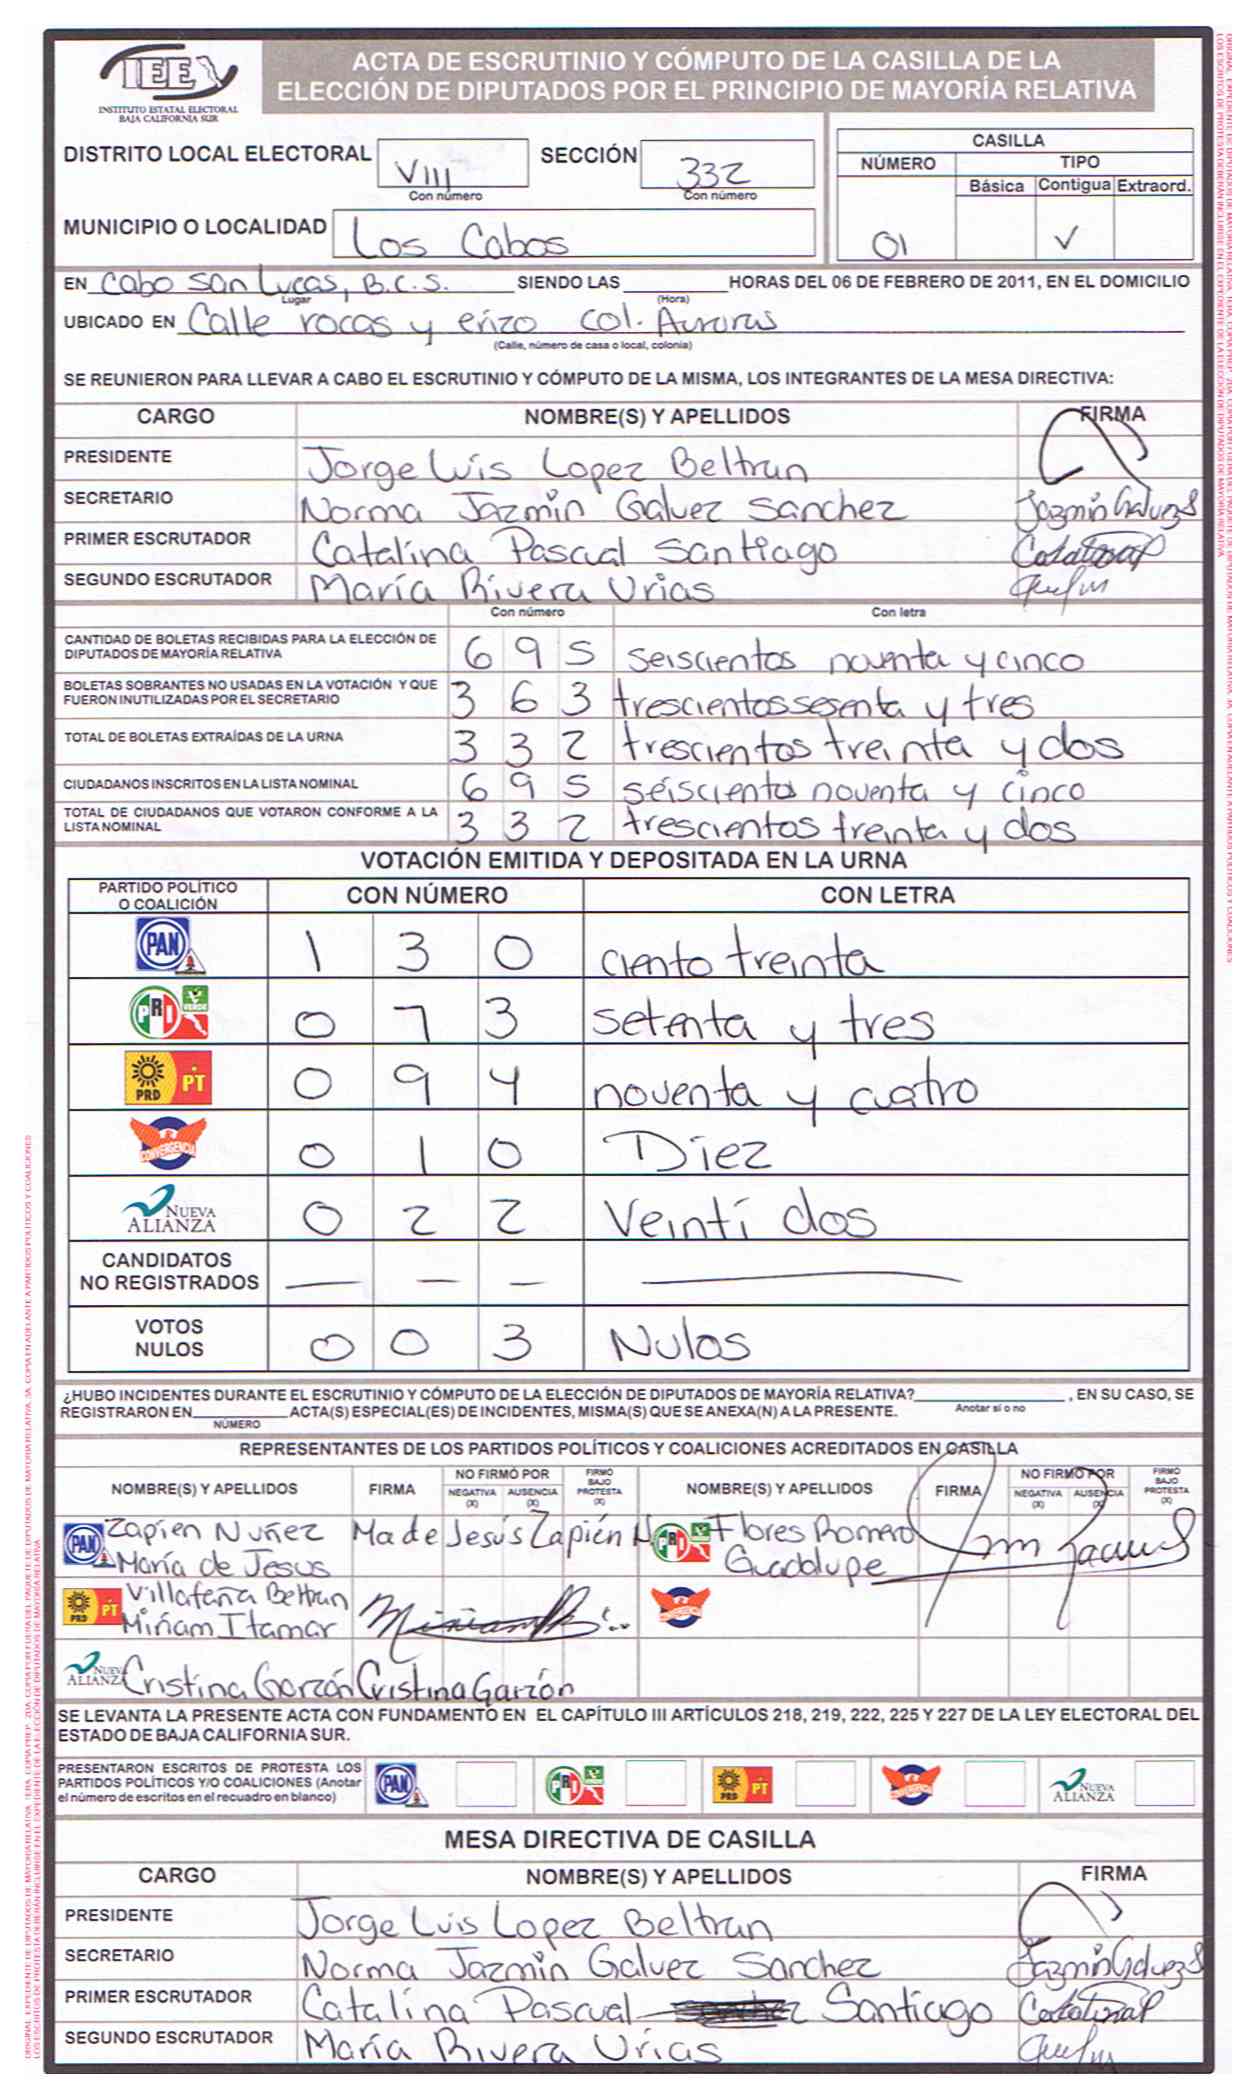 IEE
INSTITUTO ESTATAL ELECTORAL
BAJA CALIFORNIA SUR
ACTA DE ESCRUTINIO Y CÓMPUTO DE LA CASILLA DE LA
ELECCIÓN DE DIPUTADOS POR EL PRINCIPIO DE MAYORÍA RELATIVA
DISTRITO LOCAL ELECTORAL VIII SECCIÓN 332
Con número Con número
CASILLA
NÚMERO TIPO
Básica Contigua Extraord.
01 ✓
MUNICIPIO O LOCALIDAD Los Cabos
EN Cabo San Lucas, B.C.S. SIENDO LAS HORAS DEL 06 DE FEBRERO DE 2011, EN EL DOMICILIO
Lugar (Hora)
UBICADO EN Calle rocas y erizo col. Auroras
(Calle, número de casa o local, colonia)
SE REUNIERON PARA LLEVAR A CABO EL ESCRUTINIO Y CÓMPUTO DE LA MISMA, LOS INTEGRANTES DE LA MESA DIRECTIVA:
CARGO NOMBRE(S) Y APELLIDOS FIRMA
PRESIDENTE Jorge Luis Lopez Beltran
SECRETARIO Norma Jazmin Galvez Sanchez Jazmin Galvez S
PRIMER ESCRUTADOR Catalina Pascual Santiago Catalina P
SEGUNDO ESCRUTADOR María Rivera Urias
Con número Con letra
CANTIDAD DE BOLETAS RECIBIDAS PARA LA ELECCIÓN DE
DIPUTADOS DE MAYORÍA RELATIVA 6 9 5 seiscientos noventa y cinco
BOLETAS SOBRANTES NO USADAS EN LA VOTACIÓN Y QUE
FUERON INUTILIZADAS POR EL SECRETARIO 3 6 3 trescientos sesenta y tres
TOTAL DE BOLETAS EXTRAÍDAS DE LA URNA 3 3 2 trescientos treinta y dos
CIUDADANOS INSCRITOS EN LA LISTA NOMINAL 6 9 5 seiscientos noventa y cinco
TOTAL DE CIUDADANOS QUE VOTARON CONFORME A LA
LISTA NOMINAL 3 3 2 trescientos treinta y dos
VOTACIÓN EMITIDA Y DEPOSITADA EN LA URNA
PARTIDO POLÍTICO
O COALICIÓN CON NÚMERO CON LETRA
PAN 1 3 0 ciento treinta
PRI VERDE 0 7 3 setenta y tres
PRD PT 0 9 4 noventa y cuatro
CONVERGENCIA 0 1 0 Diez
NUEVA
ALIANZA 0 2 2 Veinti dos
CANDIDATOS
NO REGISTRADOS — — — —
VOTOS
NULOS 0 0 3 Nulos
¿HUBO INCIDENTES DURANTE EL ESCRUTINIO Y CÓMPUTO DE LA ELECCIÓN DE DIPUTADOS DE MAYORÍA RELATIVA? , EN SU CASO, SE
Anotar si o no
REGISTRARON EN ACTA(S) ESPECIAL(ES) DE INCIDENTES, MISMA(S) QUE SE ANEXA(N) A LA PRESENTE.
NÚMERO
REPRESENTANTES DE LOS PARTIDOS POLÍTICOS Y COALICIONES ACREDITADOS EN CASILLA
NOMBRE(S) Y APELLIDOS FIRMA NO FIRMÓ POR NEGATIVA (X) AUSENCIA (X) FIRMÓ BAJO PROTESTA (X) NOMBRE(S) Y APELLIDOS FIRMA NO FIRMÓ POR NEGATIVA (X) AUSENCIA (X) FIRMÓ BAJO PROTESTA (X)
PAN Zapien Nuñez Ma de Jesús Zapién N PRI VERDE Flores Romero
María de Jesus Guadalupe
PRD PT Villafaña Beltran CONVERGENCIA
Miriam Itamar
NUEVA
ALIANZA Cristina Garzón Cristina Garzón
SE LEVANTA LA PRESENTE ACTA CON FUNDAMENTO EN EL CAPÍTULO III ARTÍCULOS 218, 219, 222, 225 Y 227 DE LA LEY ELECTORAL DEL
ESTADO DE BAJA CALIFORNIA SUR.
PRESENTARON ESCRITOS DE PROTESTA LOS
PARTIDOS POLÍTICOS Y/O COALICIONES (Anotar
el número de escritos en el recuadro en blanco)
PAN PRI VERDE PRD PT CONVERGENCIA NUEVA ALIANZA
MESA DIRECTIVA DE CASILLA
CARGO NOMBRE(S) Y APELLIDOS FIRMA
PRESIDENTE Jorge Luis Lopez Beltran
SECRETARIO Norma Jazmin Galvez Sanchez Jazmin Galvez S
PRIMER ESCRUTADOR Catalina Pascual Santiago Catalina P
SEGUNDO ESCRUTADOR María Rivera Urias